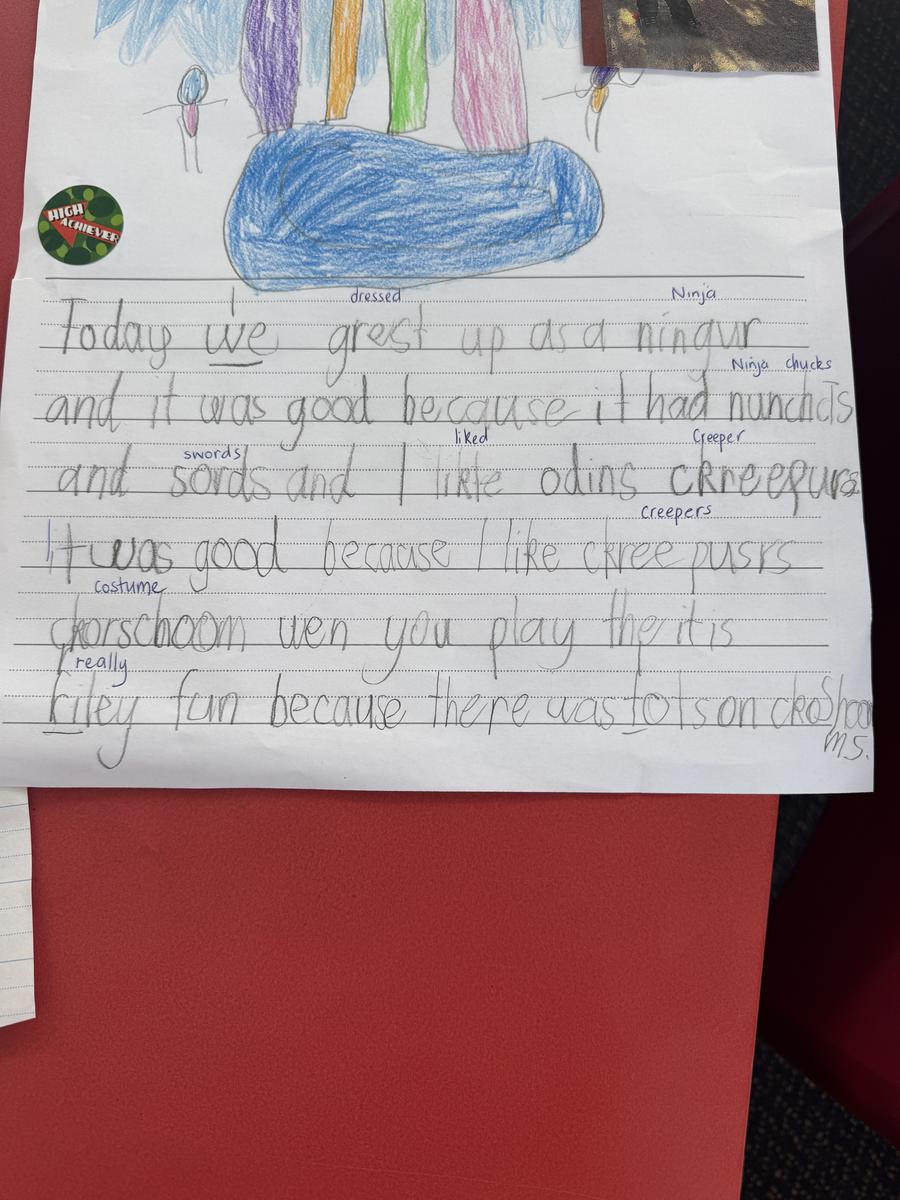 HIGH
ACHIEVER
dressed Ninja
Today we grest up as a ningur
Ninja chucks
and it was good because it had nunchcts
swords liked Creeper
and sords and I likte odins ckreepurs
creepers
It was good because I like ckreepusrs
costume
ckorschoom wen you play the it is
really
riley fun because there was tots on ckoShoo
ms.